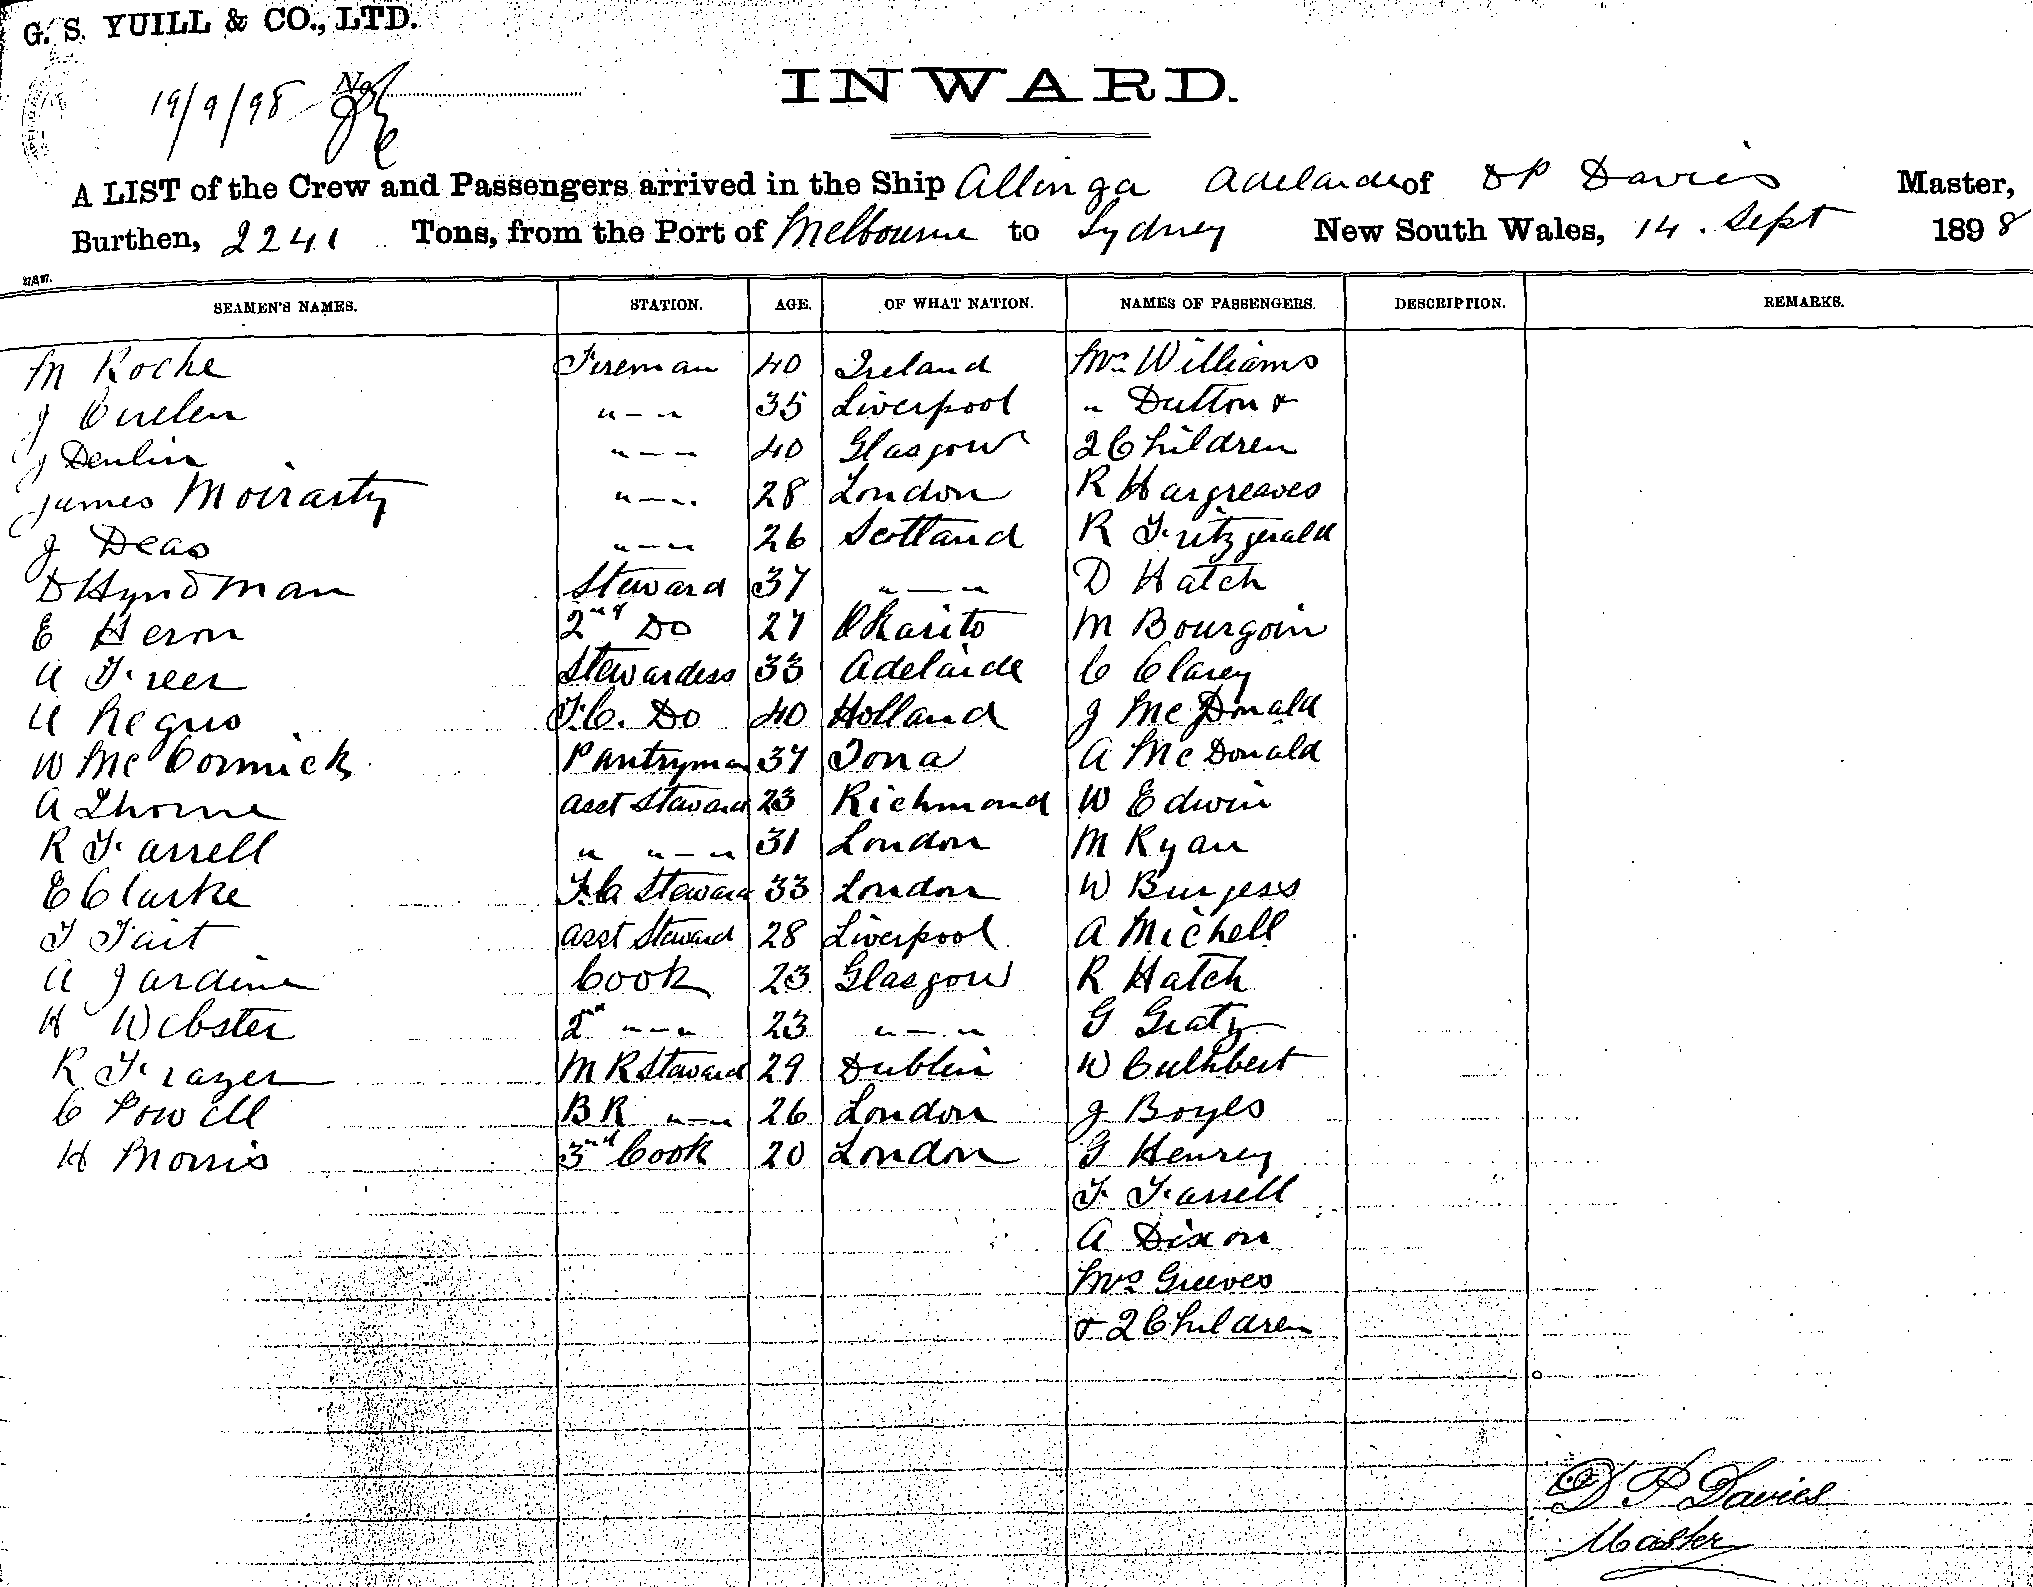 G. S. YUILL & CO., LTD.
19/9/98 No
INWARD.
A LIST of the Crew and Passengers arrived in the Ship Allinga Adelaide of D P Davies Master,
Burthen, 2241 Tons, from the Port of Melbourne to Sydney New South Wales, 14. Sept 1898
SEAMEN'S NAMES. STATION. AGE. OF WHAT NATION. NAMES OF PASSENGERS. DESCRIPTION. REMARKS.
M Roche Fireman 40 Ireland Williams
J " — " 35 Liverpool " Dutton &
J Denlin " — " 40 Glasgow 2 Children
James Moirarty " — " 28 London R Hargreaves
J Deas " — " 26 Scotland R Fritzgerald
D Hyndman Steward 37 " — " D Hatch
E Heron 2nd Do 27 Okarito M Bourgoin
A Freer Stewardess 33 Adelaide C Clarey
A Regus F.C. Do 40 Holland J McDonald
W McCormick Pantryman 37 Iona A McDonald
A Thorne Asst Steward 23 Richmond W Edwin
R Farrell " " — " 31 London M Ryan
E Clarke F.C Steward 33 London W Burgess
T Tait Asst Steward 28 Liverpool A Michell
A Jardine Cook 23 Glasgow R Hatch
H Webster 2nd " — " 23 " — " G Gratz
R Frazer M R Steward 29 Dublin W Cuthbert
C Powell B R " — " 26 London J Boyes
H Morris 3rd Cook 20 London G Henrey
F Farrell
A Dixon
Mrs Greeves
& 2 Children
D P Davies
Master